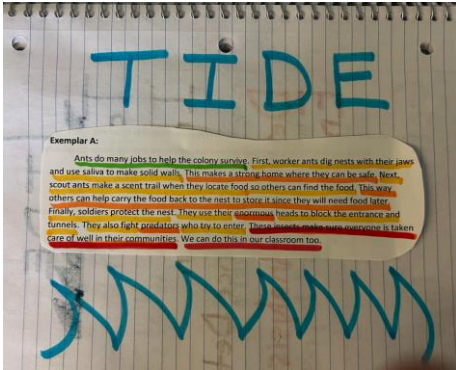 TIDE
Exemplar A:
Ants do many jobs to help the colony survive. First, worker ants dig nests with their jaws
and use saliva to make solid walls. This makes a strong home where they can be safe. Next,
scout ants make a scent trail when they locate food so others can find the food. This way
others can help carry the food back to the nest to store it since they will need food later.
Finally, soldiers protect the nest. They use their enormous heads to block the entrance and
tunnels. They also fight predators who try to enter. These insects make sure everyone is taken
care of well in their communities. We can do this in our classroom too.